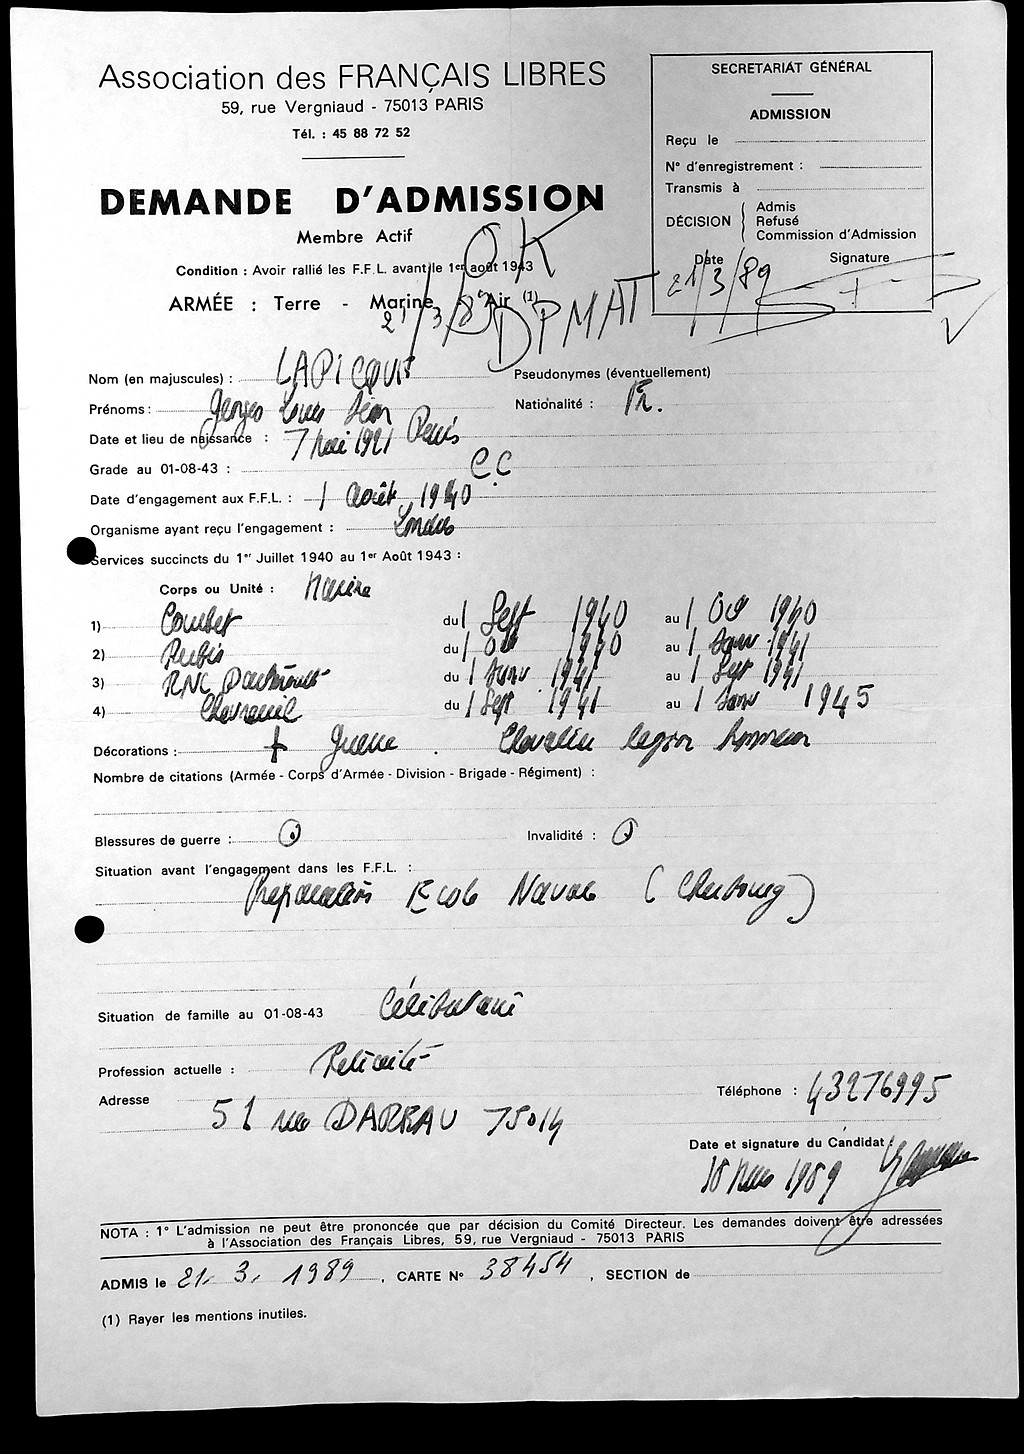 Association des FRANÇAIS LIBRES
59, rue Vergniaud - 75013 PARIS
Tél. : 45 88 72 52
DEMANDE D'ADMISSION
Membre Actif
Condition : Avoir rallié les F.F.L. avant le 1er août 1943
ARMÉE : Terre - Marine - Air (1)
OK
21/3/89 DPMAT
SECRETARIAT GÉNÉRAL
ADMISSION
Reçu le
N° d'enregistrement :
Transmis à
DÉCISION
Admis
Refusé
Commission d'Admission
Date Signature
21/3/89
Nom (en majuscules) : LAPICQUE Pseudonymes (éventuellement)
Prénoms : Georges Louis Jean Nationalité : Fr.
Date et lieu de naissance : 7 Mai 1921 Paris
Grade au 01-08-43 : C.C
Date d'engagement aux F.F.L. : 1 août 1940
Organisme ayant reçu l'engagement : Londres
Services succincts du 1er Juillet 1940 au 1er Août 1943 :
Corps ou Unité : Marine
1) Courbet du 1 Sept 1940 au 1 Oct 1940
2) Rubis du 1 Oct 1940 au 1 Janv 1941
3) RNC Dartmouth du 1 Janv 1941 au 1 Sept 1941
4) Chevreuil du 1 Sept 1941 au 1 Janv 1945
Décorations : + Guerre . Chevalier légion honneur
Nombre de citations (Armée - Corps d'Armée - Division - Brigade - Régiment) :
Blessures de guerre : 0 Invalidité : 0
Situation avant l'engagement dans les F.F.L. :
Préparation Ecole Navale (Cherbourg)
Situation de famille au 01-08-43 Célibataire
Profession actuelle : Retraité
Adresse 51 rue DARRAU 75014 Téléphone : 43276995
Date et signature du Candidat :
18 Mars 1989
NOTA : 1° L'admission ne peut être prononcée que par décision du Comité Directeur. Les demandes doivent être adressées
à l'Association des Français Libres, 59, rue Vergniaud - 75013 PARIS
ADMIS le 21. 3. 1989 . CARTE N° 38454 , SECTION de
(1) Rayer les mentions inutiles.